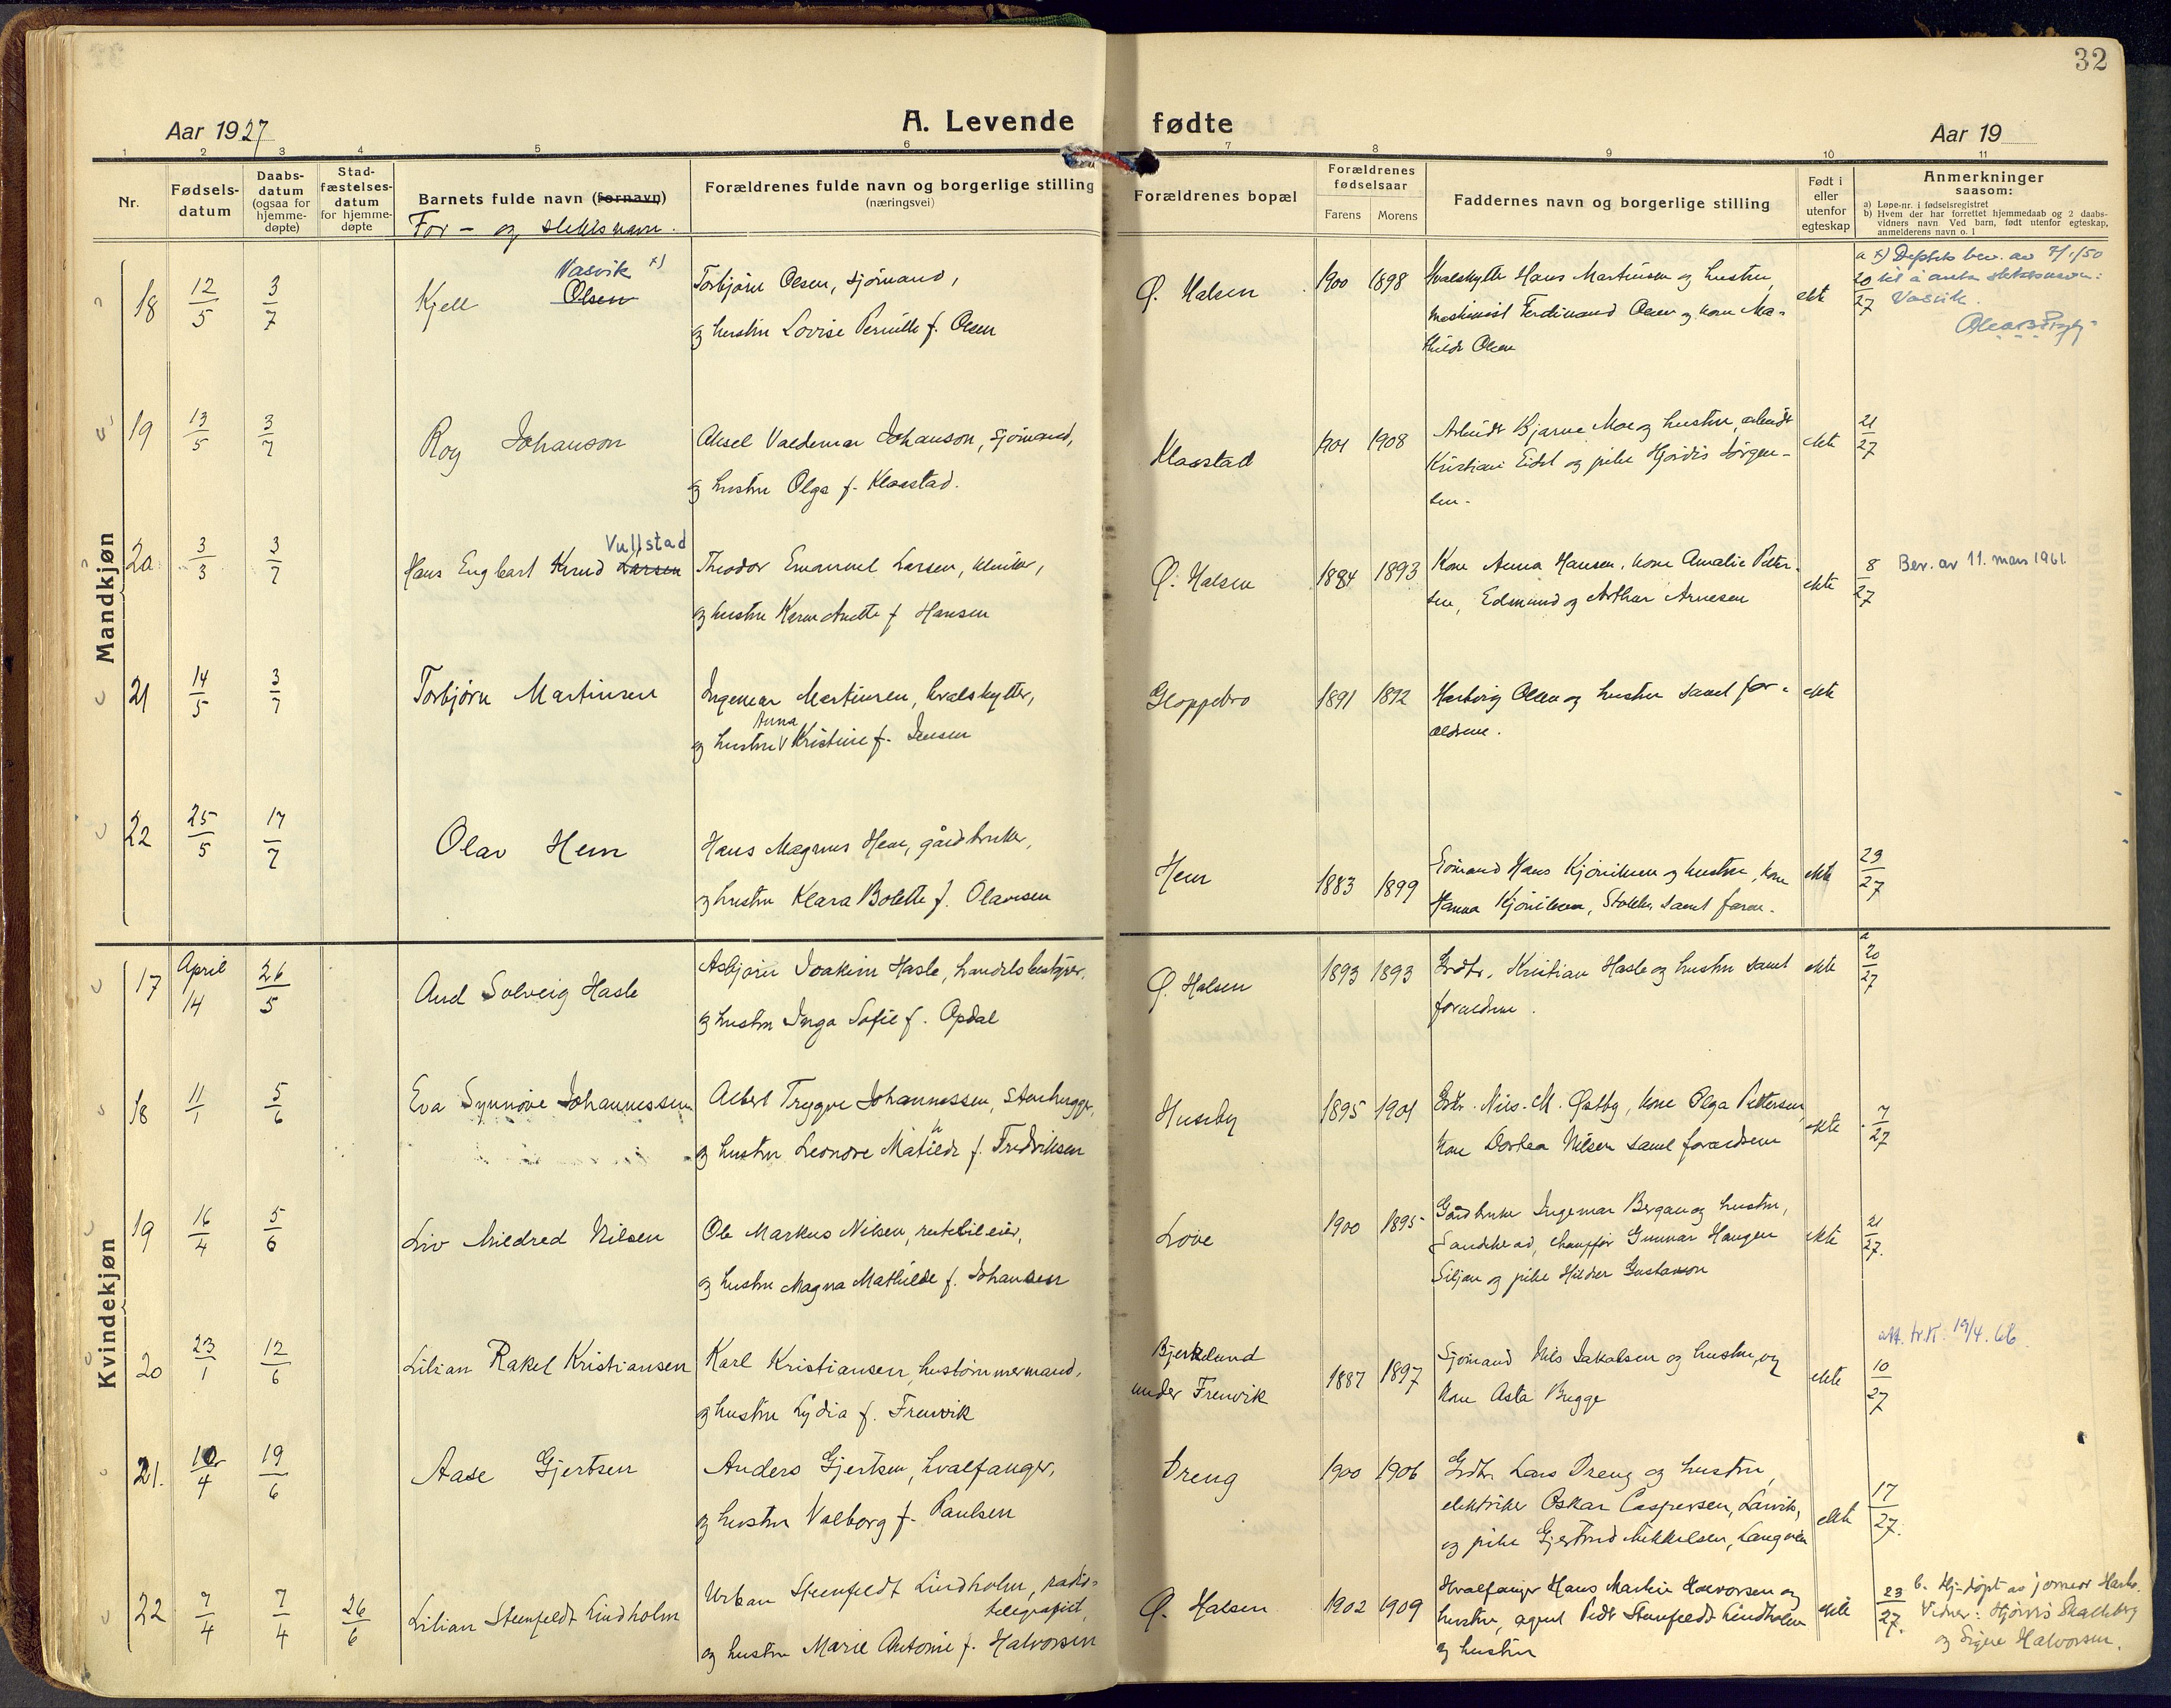 32
Aar 1927
A. Levende fødte
Aar 19
1 2 3 4 5 6 7 8 9 10 11
Nr.
Fødsels-
datum
Daabs-
datum
(ogsaa for
hjemme-
døpte)
Stad-
fæstelses-
datum
for hjemme-
døpte
Barnets fulde navn (fornavn)
For- og slektsnavn.
Forældrenes fulde navn og borgerlige stilling
(næringsvei)
Forældrenes bopæl
Forældrenes
fødselsaar
Farens Morens
Faddernes navn og borgerlige stilling
Født i
eller
utenfor
egteskap
Anmerkninger
saasom:
a) Løpe-nr. i fødselsregistret
b) Hvem der har forrettet hjemmedaab og 2 daabs-
vidners navn Ved barn, født utenfor egteskap,
anmelderens navn o. l
Mandkjøn
18 12/5 3/7 Kjell Olsen
Vasvik x)
Torbjørn Olsen, sjømand,
og hustru Lovise Pernille f. Olsen
Ø. Halsen 1900 1898
Hvalskytte Hans Martinsen og hustru,
maskinist Ferdinand Olsen og kone Ma-
thilde Olsen
ekte
a 20/27
x) Deptets bev. av 7/1/50
til å anta slektsnavn:
Vasvik.
19 13/5 3/7 Roy Johanson
Aksel Valdemar Johanson, sjømand,
og hustru Olga f. Klaastad.
Klaastad 1901 1908
Arbeider Bjarne Moe og hustru, arbeider
Kristian Eidet og pike Hjørdis Jørgen-
sen.
ekte 21/27
20 3/3 3/7 Hans Englbart Knud Larsen
Vullstad
Theodor Emanuel Larsen,
og hustru Karen Anette f. Hansen
Ø. Halsen 1884 1893
Kone Anna Hansen, kone Amalie Peter-
sen, Edmund og Arthur Arnesen
ekte 8/27 Bev. av 11. mars 1961.
21 14/5 3/7 Torbjørn Martinsen
Ingemar Martinsen, hvalskytter,
og hustru Anna Kristine f. Jensen
Gloppebro 1891 1892
Hartvig Olsen og hustru samt for-
ældrene.
ekte
22 25/5 17/7 Olav Hem
Hans Magnus Hem, gårdbruker,
og hustru Klara Bolette f. Olavesen
Hem 1883 1899
Sømand Hans Kjøniksen og hustru, kone
Hanna Kjøniksen, Stokke, samt faren.
ekte 29/27
Kvindekjøn
17 April 14 26/5 Aud Solveig Hasle
Asbjørn Joakim Hasle, handelsbestyrer,
og hustru Inga Sofie f. Opdal
Ø. Halsen 1893 1893
Grdbr. Kristian Hasle og hustru samt
forældrene.
ekte a 20/27
18 11/1 5/6 Eva Synnøve Johannessen
Albert Trygve Johannessen, Stenhugger,
og hustru Leonore Matilde f. Fredriksen
Huseby 1895 1901
Grbr. Nils M. Østby, kone Olga Pettersen,
kone Dorthea Nilsen samt forældrene
ekte 7/27
19 16/4 5/6 Liv Mildred Nilsen
Ole Markus Nilsen, rutebileier,
og hustru Magna Mathilde f. Johansen
Love 1900 1895
Gårdbruker Ingemar Bergan og hustru,
Sandehead, chauffør Gunnar Haugen
Siljan og pike Hildur Gustavson
ekte 21/27.
20 23/1 12/6 Lilian Rakel Kristiansen
Karl Kristiansen, hustømmermand,
og hustru Lydia f. Freuvik
Bjerkelund
under Freuvik
1887 1897
Sjømand Nils Jakobsen og hustru, og
kone Asta Bugge
ekte 10/27
19/4. 66
21. 10/4 19/6 Aase Gjertsen
Anders Gjertsen, hvalfanger,
og hustru Valborg f. Paulsen
Dreng 1900 1906
Grdbr. Lars Dreng og hustru,
elektriker Oskar Caspersen, Larvik,
og pike Gjertrud Mikkelsen, Langøen
ekte 17/27.
22 7/4 7/4 26/6 Lilian Steenfeldt Lindholm
Urban Steenfeldt Lindholm, radio-
telegrafist,
og hustru Marie Antonie f. Halvorsen
Ø. Halsen 1902 1909
Hvalfanger Hans Martin Halvorsen og
hustru, agent Peder Steenfeldt Lindholm
og hustru
ekte 23/27.
b. Hj-døpt av jormor
Vidner: Hjørdis Skalleberg
og Signe Halvorsen.